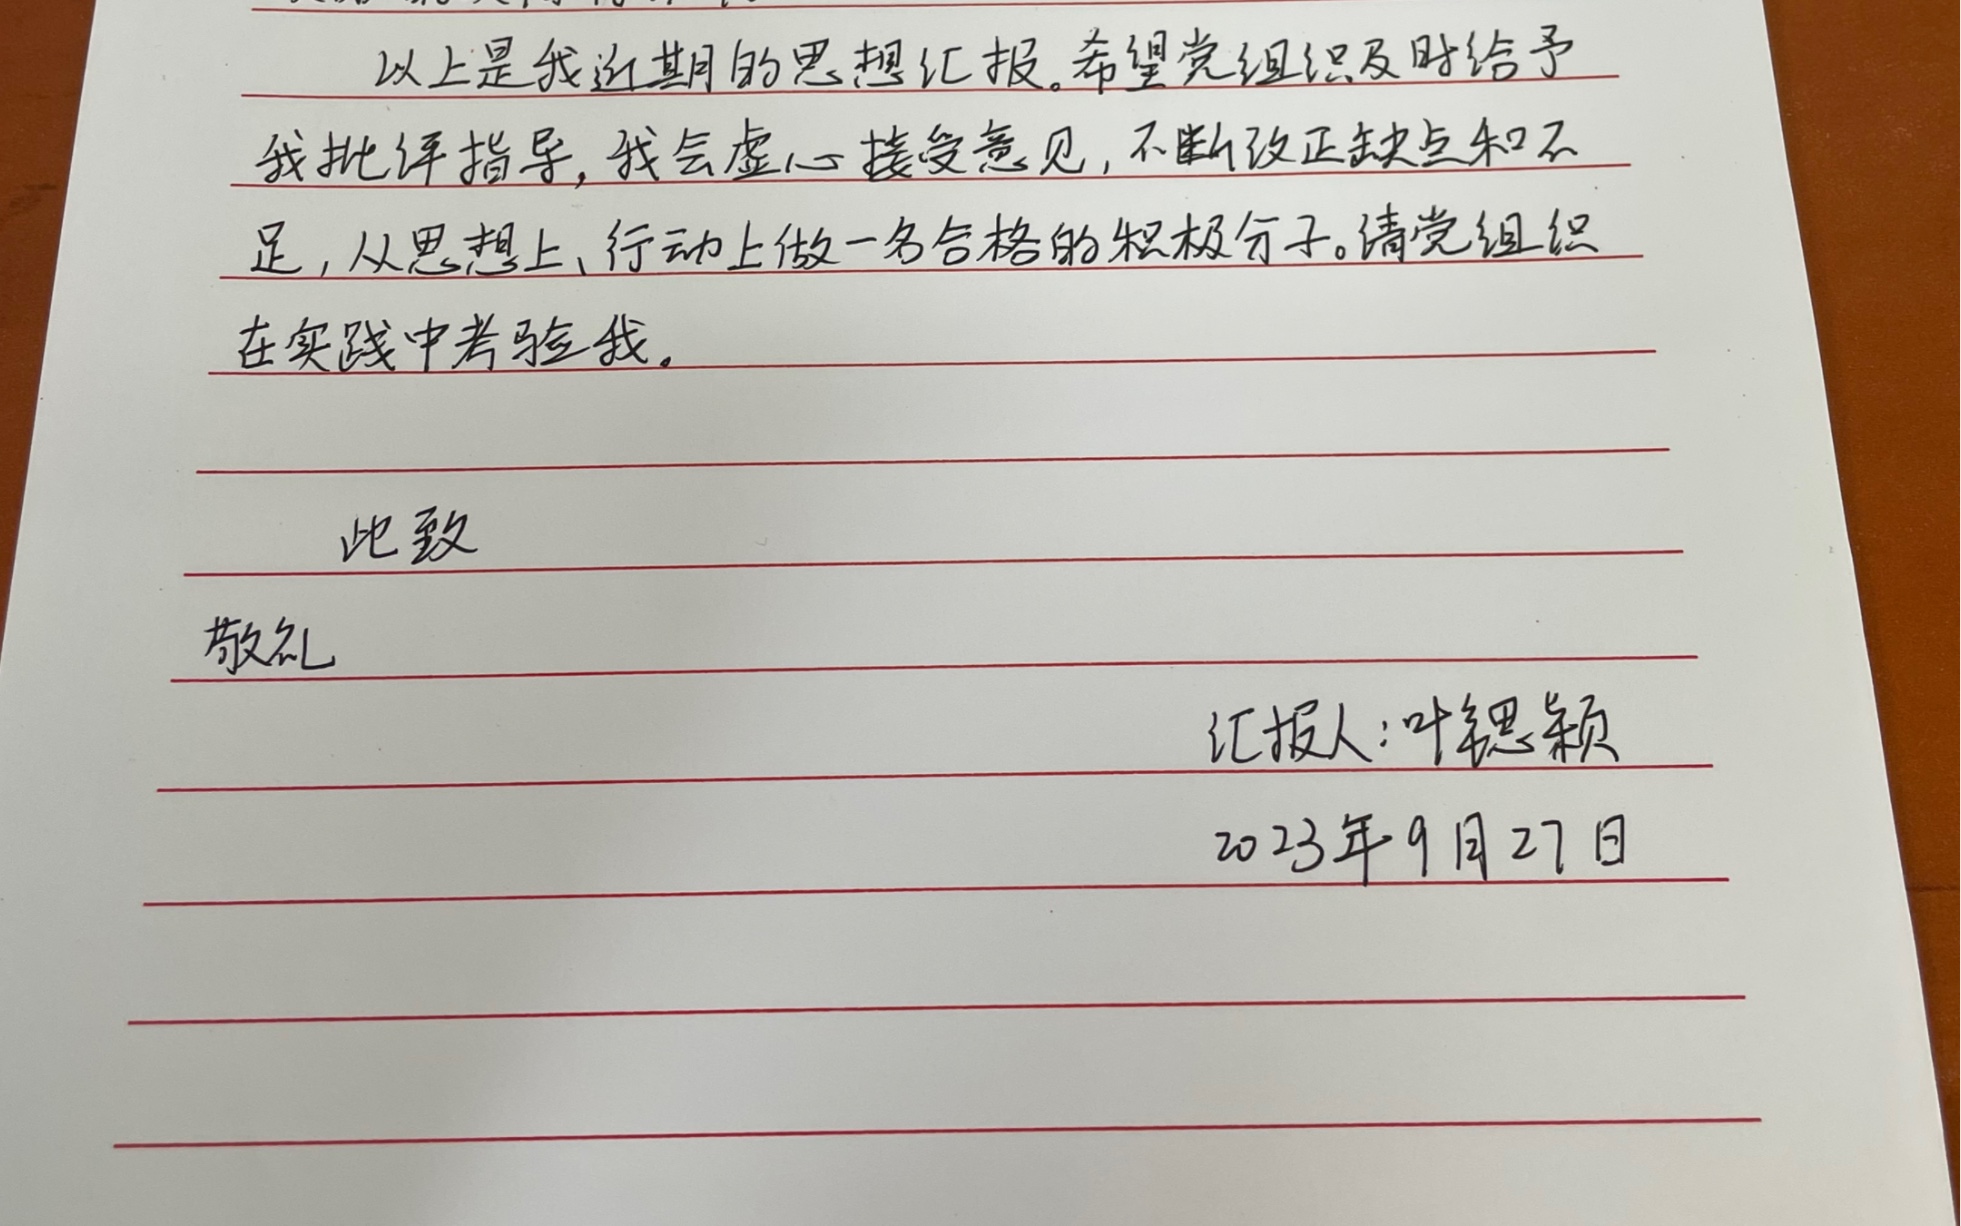 以上是我近期的思想汇报。希望党组织及时给予
我批评指导，我会虚心接受意见，不断改正缺点和不
足，从思想上、行动上做一名合格的积极分子。请党组织
在实践中考验我。
此致
敬礼
汇报人：叶锶颖
2023年9月27日